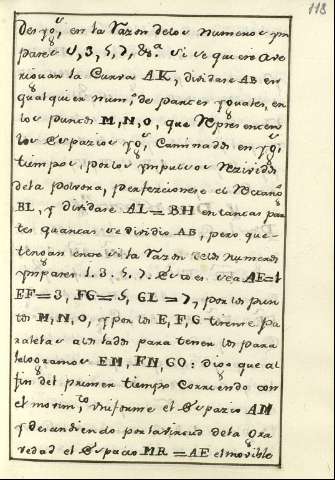 118
Des yg.s, en la razon delos numeros ym
pares 1, 3, 5, 7, &.a Si se quiere ave
riguar la Curva AK, dividase AB en
qualquier num.o de partes yguales, en
los puntos M, N, O, que representen
los Espazios yg.s Caminados en yg.s
tiempos, por los ympulsos rezividos
dela polvora, perfeccionese el Rectang.o
BL, y dividase AL = BH en tantas par
tes quantas se dividio AB, pero que
tengan entre si la razon delos numeros
ympares 1. 3. 5. 7. Esto es sea AE=1
EF=3, FG=5, GL=7, por los pun
tos M, N, O, y por los E, F, G tirense pa
ralelas alos lados para tener los para
lelogramos EM, FN, GO: digo que al
fin del primer tiempo Corriendo con
el movim.to vniforme el Espazio AM
y descendiendo por la virtud dela Gra
vedad el Espacio MR = AE el movible